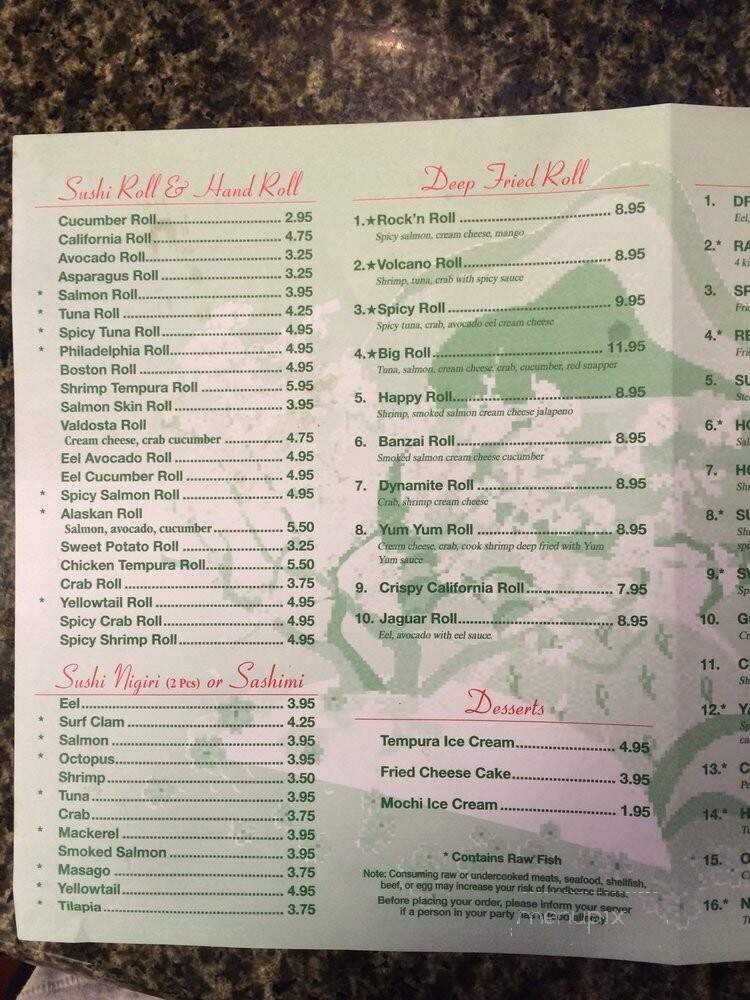 Sushi Roll & Hand Roll
Cucumber Roll 2.95
California Roll 4.75
Avocado Roll 3.25
Asparagus Roll 3.25
* Salmon Roll 3.95
* Tuna Roll 4.25
* Spicy Tuna Roll 4.95
* Philadelphia Roll 4.95
Boston Roll 4.95
Shrimp Tempura Roll 5.95
Salmon Skin Roll 3.95
Valdosta Roll
Cream cheese, crab cucumber 4.75
Eel Avocado Roll 4.95
Eel Cucumber Roll 4.95
* Spicy Salmon Roll 4.95
* Alaskan Roll
Salmon, avocado, cucumber 5.50
Sweet Potato Roll 3.25
Chicken Tempura Roll 5.50
Crab Roll 3.75
* Yellowtail Roll 4.95
Spicy Crab Roll 4.95
Spicy Shrimp Roll 4.95
Sushi Nigiri (2 Pcs) or Sashimi
Eel 3.95
* Surf Clam 4.25
* Salmon 3.95
* Octopus 3.95
Shrimp 3.50
* Tuna 3.95
Crab 3.75
* Mackerel 3.95
Smoked Salmon 3.95
* Masago 3.75
* Yellowtail 4.95
* Tilapia 3.75
Deep Fried Roll
1.★Rock'n Roll 8.95
Spicy salmon, cream cheese, mango
2.★Volcano Roll 8.95
Shrimp, tuna, crab with spicy sauce
3.★Spicy Roll 9.95
Spicy tuna, crab, avocado eel cream cheese
4.★Big Roll 11.95
Tuna, salmon, cream cheese, crab, cucumber, red snapper
5. Happy Roll 8.95
Shrimp, smoked salmon cream cheese jalapeno
6. Banzai Roll 8.95
Smoked salmon cream cheese cucumber
7. Dynamite Roll 8.95
Crab, shrimp cream cheese
8. Yum Yum Roll 8.95
Cream cheese, crab, cook shrimp deep fried with Yum
Yum sauce
9. Crispy California Roll 7.95
10. Jaguar Roll 8.95
Eel, avocado with eel sauce.
Desserts
Tempura Ice Cream 4.95
Fried Cheese Cake 3.95
Mochi Ice Cream 1.95
* Contains Raw Fish
Note: Consuming raw or undercooked meats, seafood, shellfish,
beef, or egg may increase your risk of foodborne illness.
Before placing your order, please inform your server
if a person in your party has a food allergy.
menupix
1.
Eel,
2.*
4 ki
3. SP
Frie
4.* RE
Frie
5. SU
Ste
6.* HO
Sal
7. HO
Shr
8.* SU
Shr
spi
9.* SV
Sp
10. G
Cr
11. C
Sh
12.* YA
ca
13.* C
Pe
14.* H
15. O
16.* N